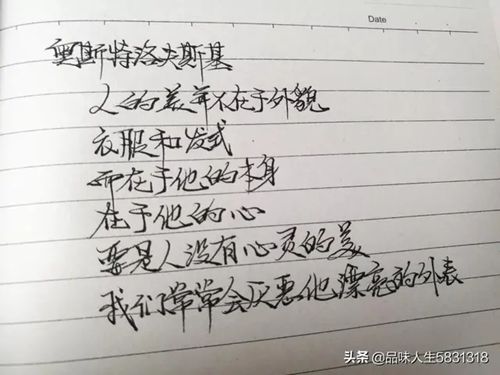 Date
奥斯特洛夫斯基
人的美并不在于外貌
衣服和发式
而在于他的本身
在于他的心
要是人没有心灵的美
我们常常会厌恶他漂亮的外表
头条 @品味人生5831318